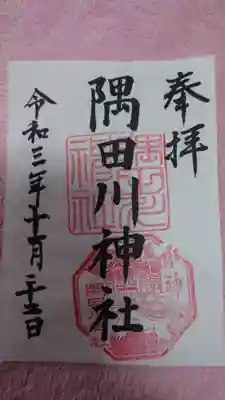 奉拝
隅田川神社
令和三年十一月二十二日